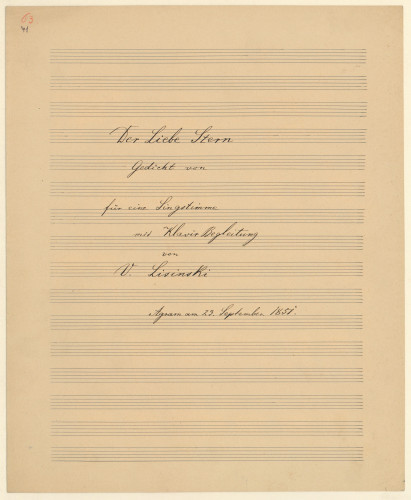 63
41
Der Liebe Stern
Gedicht von
für eine Singstimme
mit Klavier Begleitung
von
V. Lisinski
Agram am 23. September 1851.